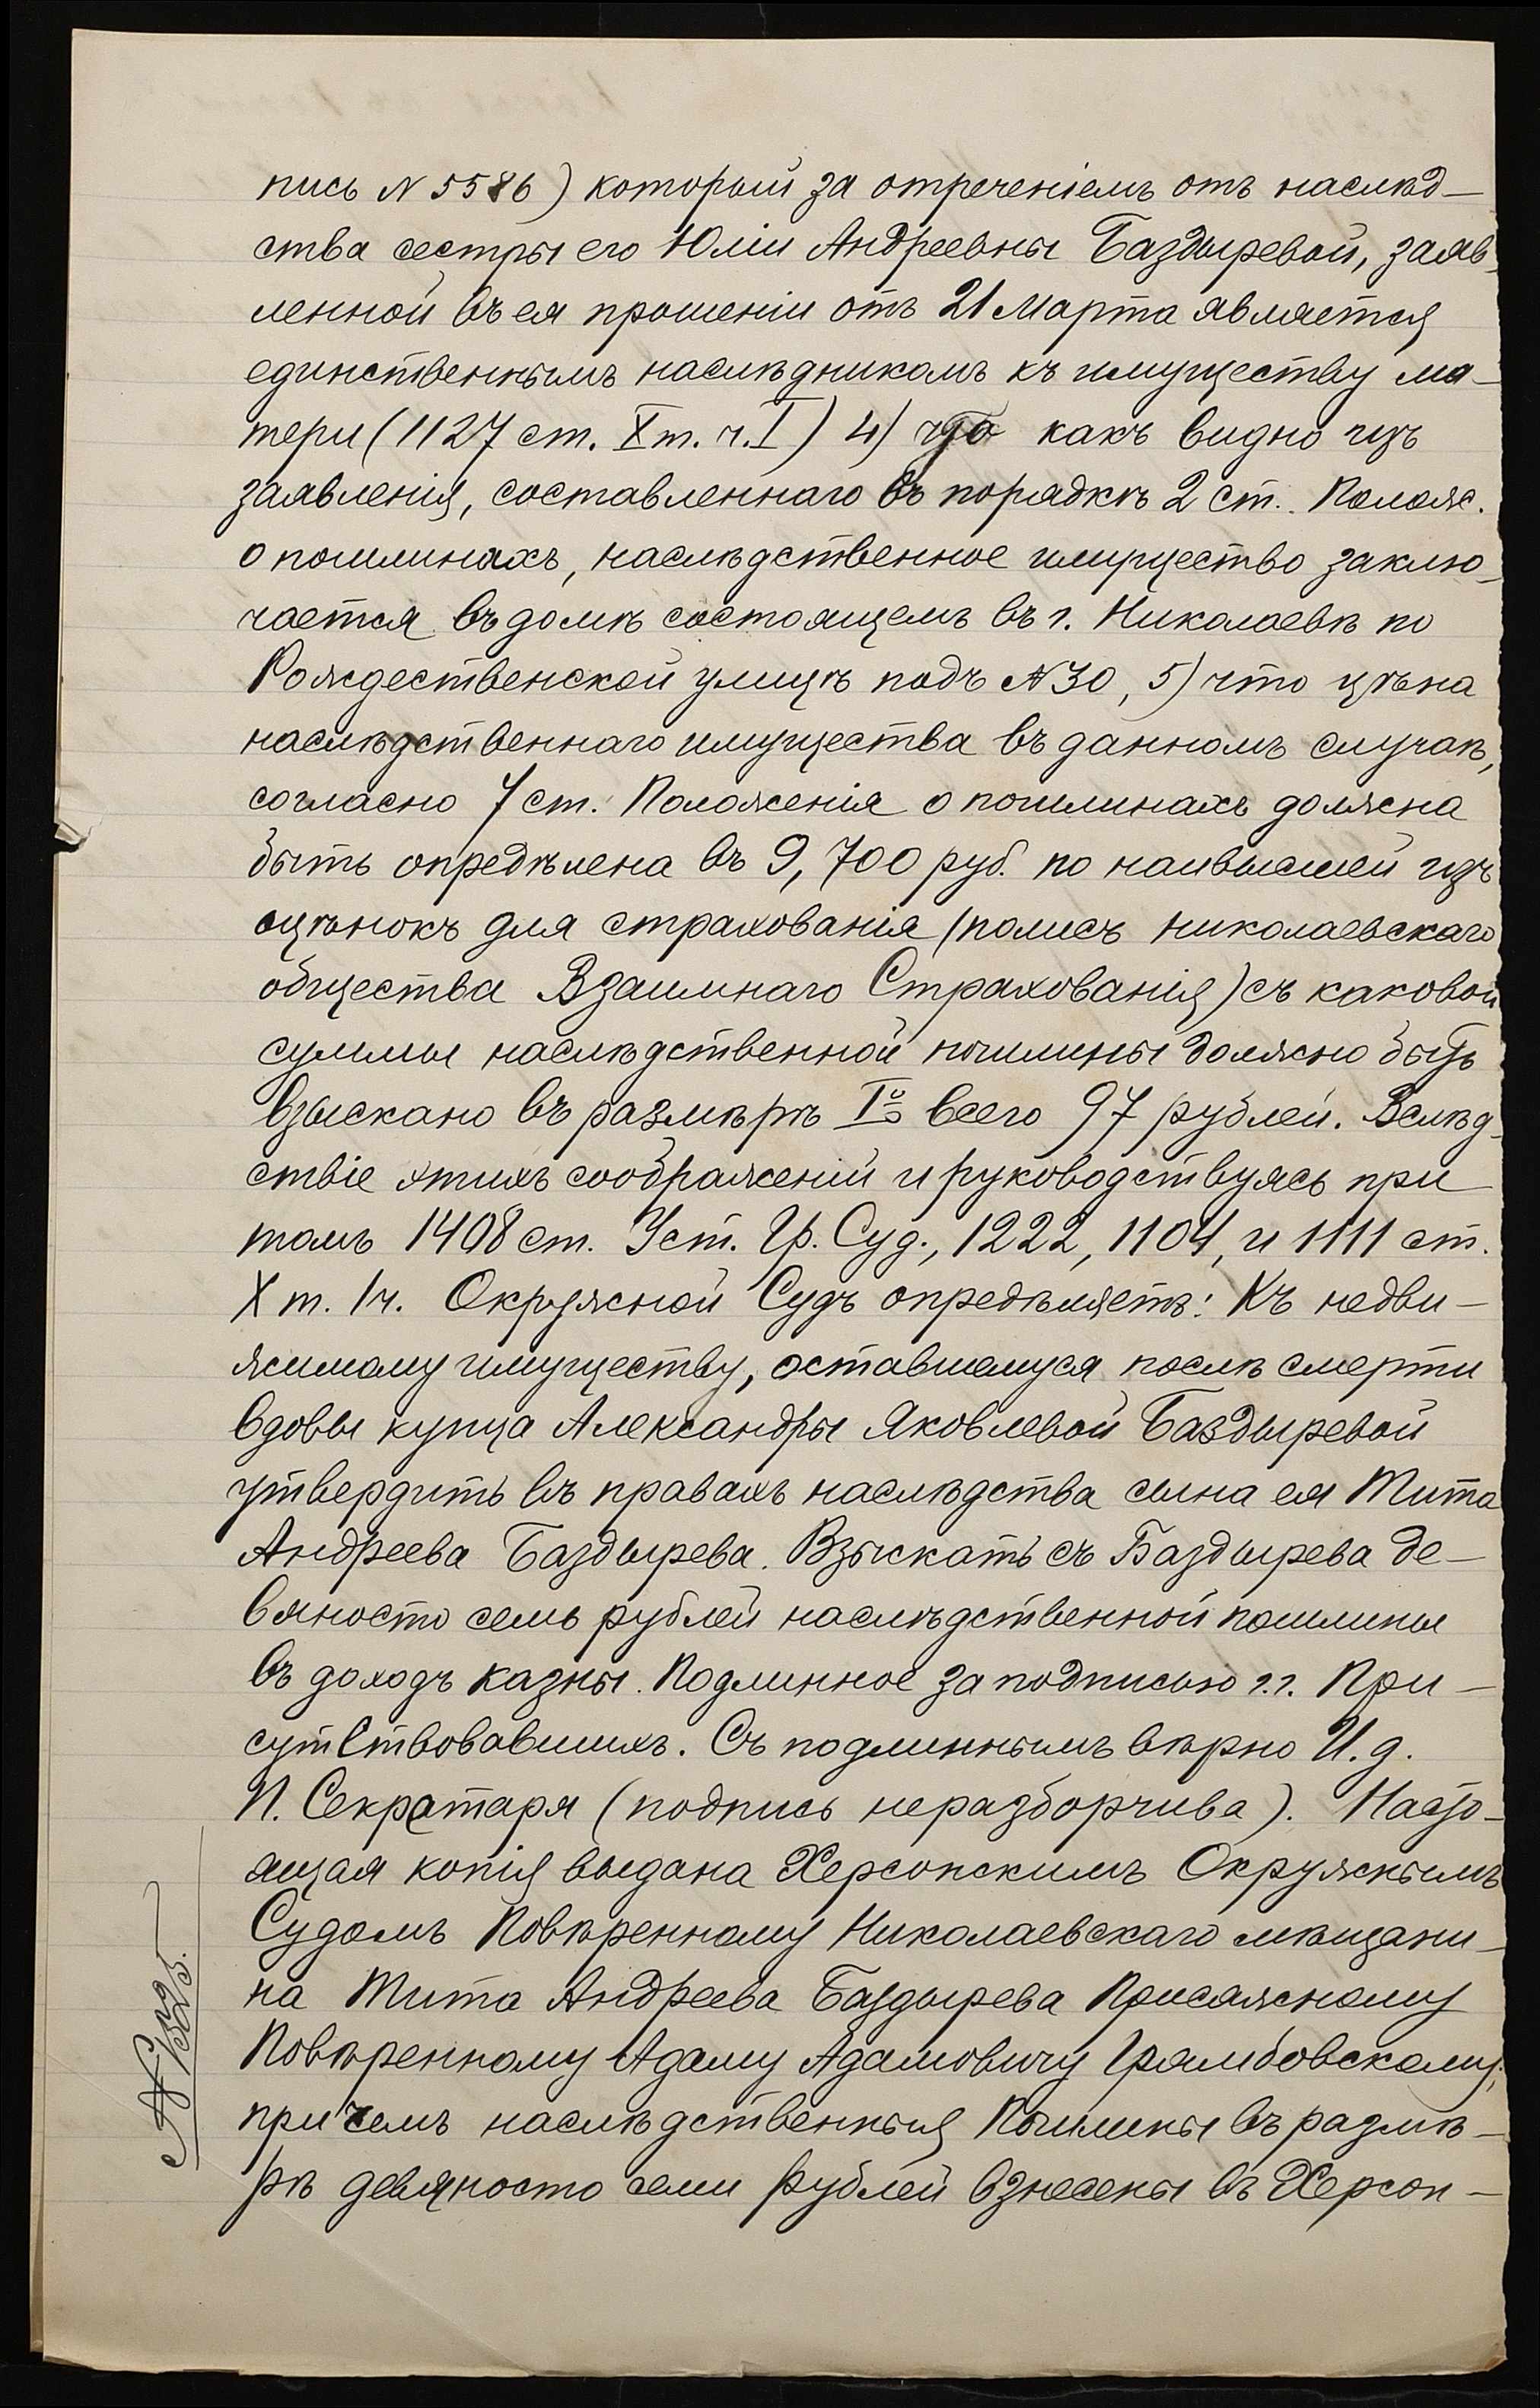 пись N 5586) который за отреченіемъ отъ наслѣд–
ства сестры его Юліи Андреевны Баздыревой, заяв–
ленной въ ея прошеніи отъ 21 Марта является
единственнымъ наслѣдникомъ къ имуществу ма–
тери (1127 ст. X т. ч. I) 4) что какъ видно изъ
заявленія, составленнаго въ порядкѣ 2 ст. Полож.
о пошлинахъ, наслѣдственное имущество заклю–
чается въ домѣ состоящемъ въ г. Николаевѣ по
Рождественской улицѣ подъ N 30, 5) что цѣна
наслѣдственнаго имущества въ данномъ случаѣ,
согласно 7 ст. Положенія о пошлинахъ должна
быть опредѣлена въ 9,700 руб. по наивысшей изъ
оцѣнокъ для страхованія (полисъ николаевскаго
общества Взаимнаго Страхованія) съ каковой
суммы наслѣдственной пошлины должно быть
взыскано въ размѣрѣ I % всего 97 рублей. Вслѣд–
ствіе этихъ соображеній и руководствуясь при
томъ 1408 ст. Уст. Гр. Суд., 1222, 1104, и 1111 ст.
X т. 1 ч. Окружной Судъ опредѣляетъ: Къ недви–
жимому имуществу, оставшемуся послѣ смерти
вдовы купца Александры Яковлевой Баздыревой
утвердить въ правахъ наслѣдства сына ея Тита
Андреева Баздырева. Взыскать съ Баздырева де–
вяносто семь рублей наслѣдственной пошлины
въ доходъ казны. Подлинное за подписью г.г. При–
сутствовавшихъ. Съ подлиннымъ вѣрно И. д.
П. Секретаря (подпись неразборчива). Насто–
ящая копія выдана Херсонскимъ Окружнымъ
Судомъ Повѣренному Николаевскаго мѣщани–
на Тита Андреева Баздырева Присяжному
Повѣренному Адаму Адамовичу Грамбовскому,
при чемъ наслѣдственныя Пошлины въ размѣ–
рѣ девяносто семи рублей внесены въ Херсон–